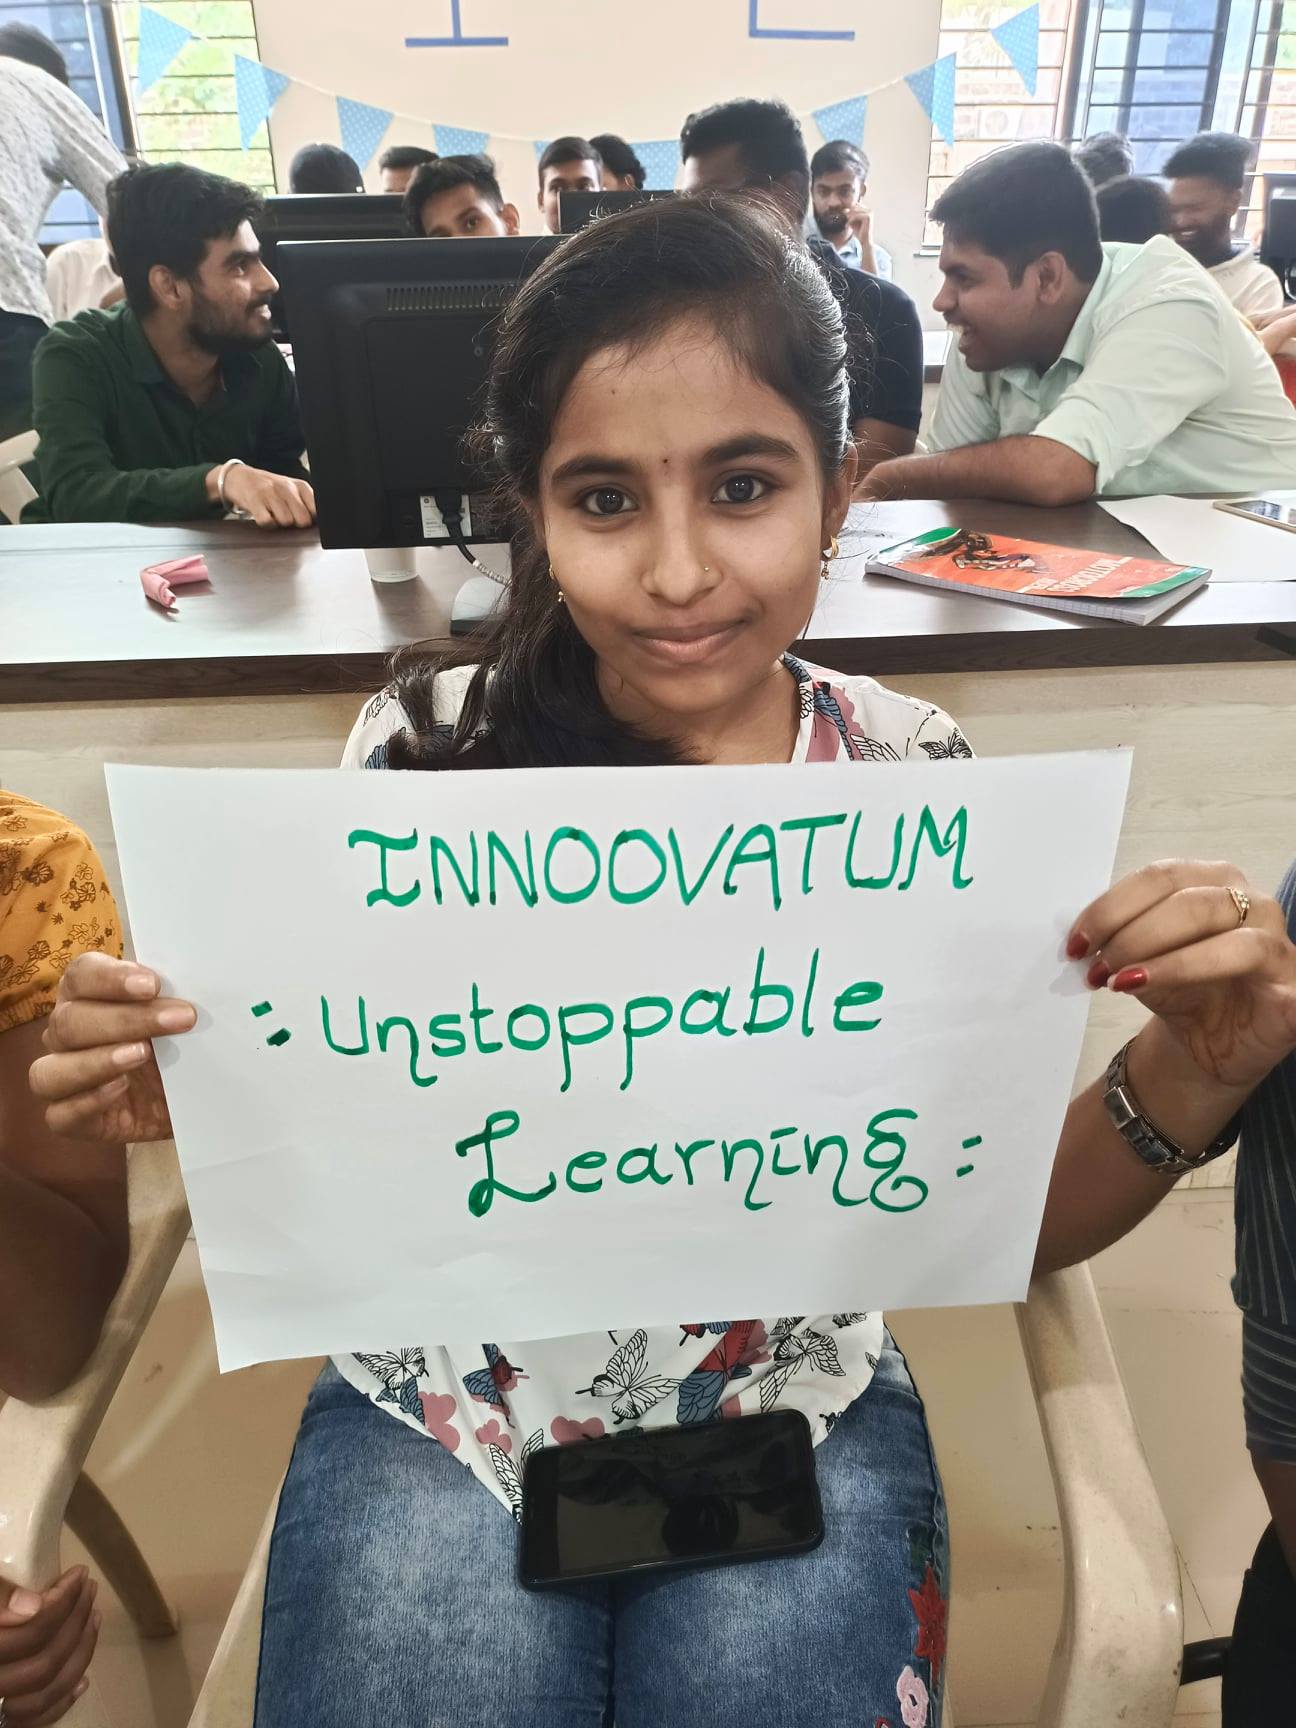 I E
INNOOVATUM
: Unstoppable
Learning :